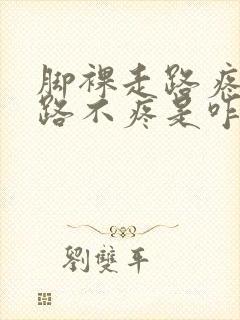 脚裸走路疼
路不疼是咋
劉雙平